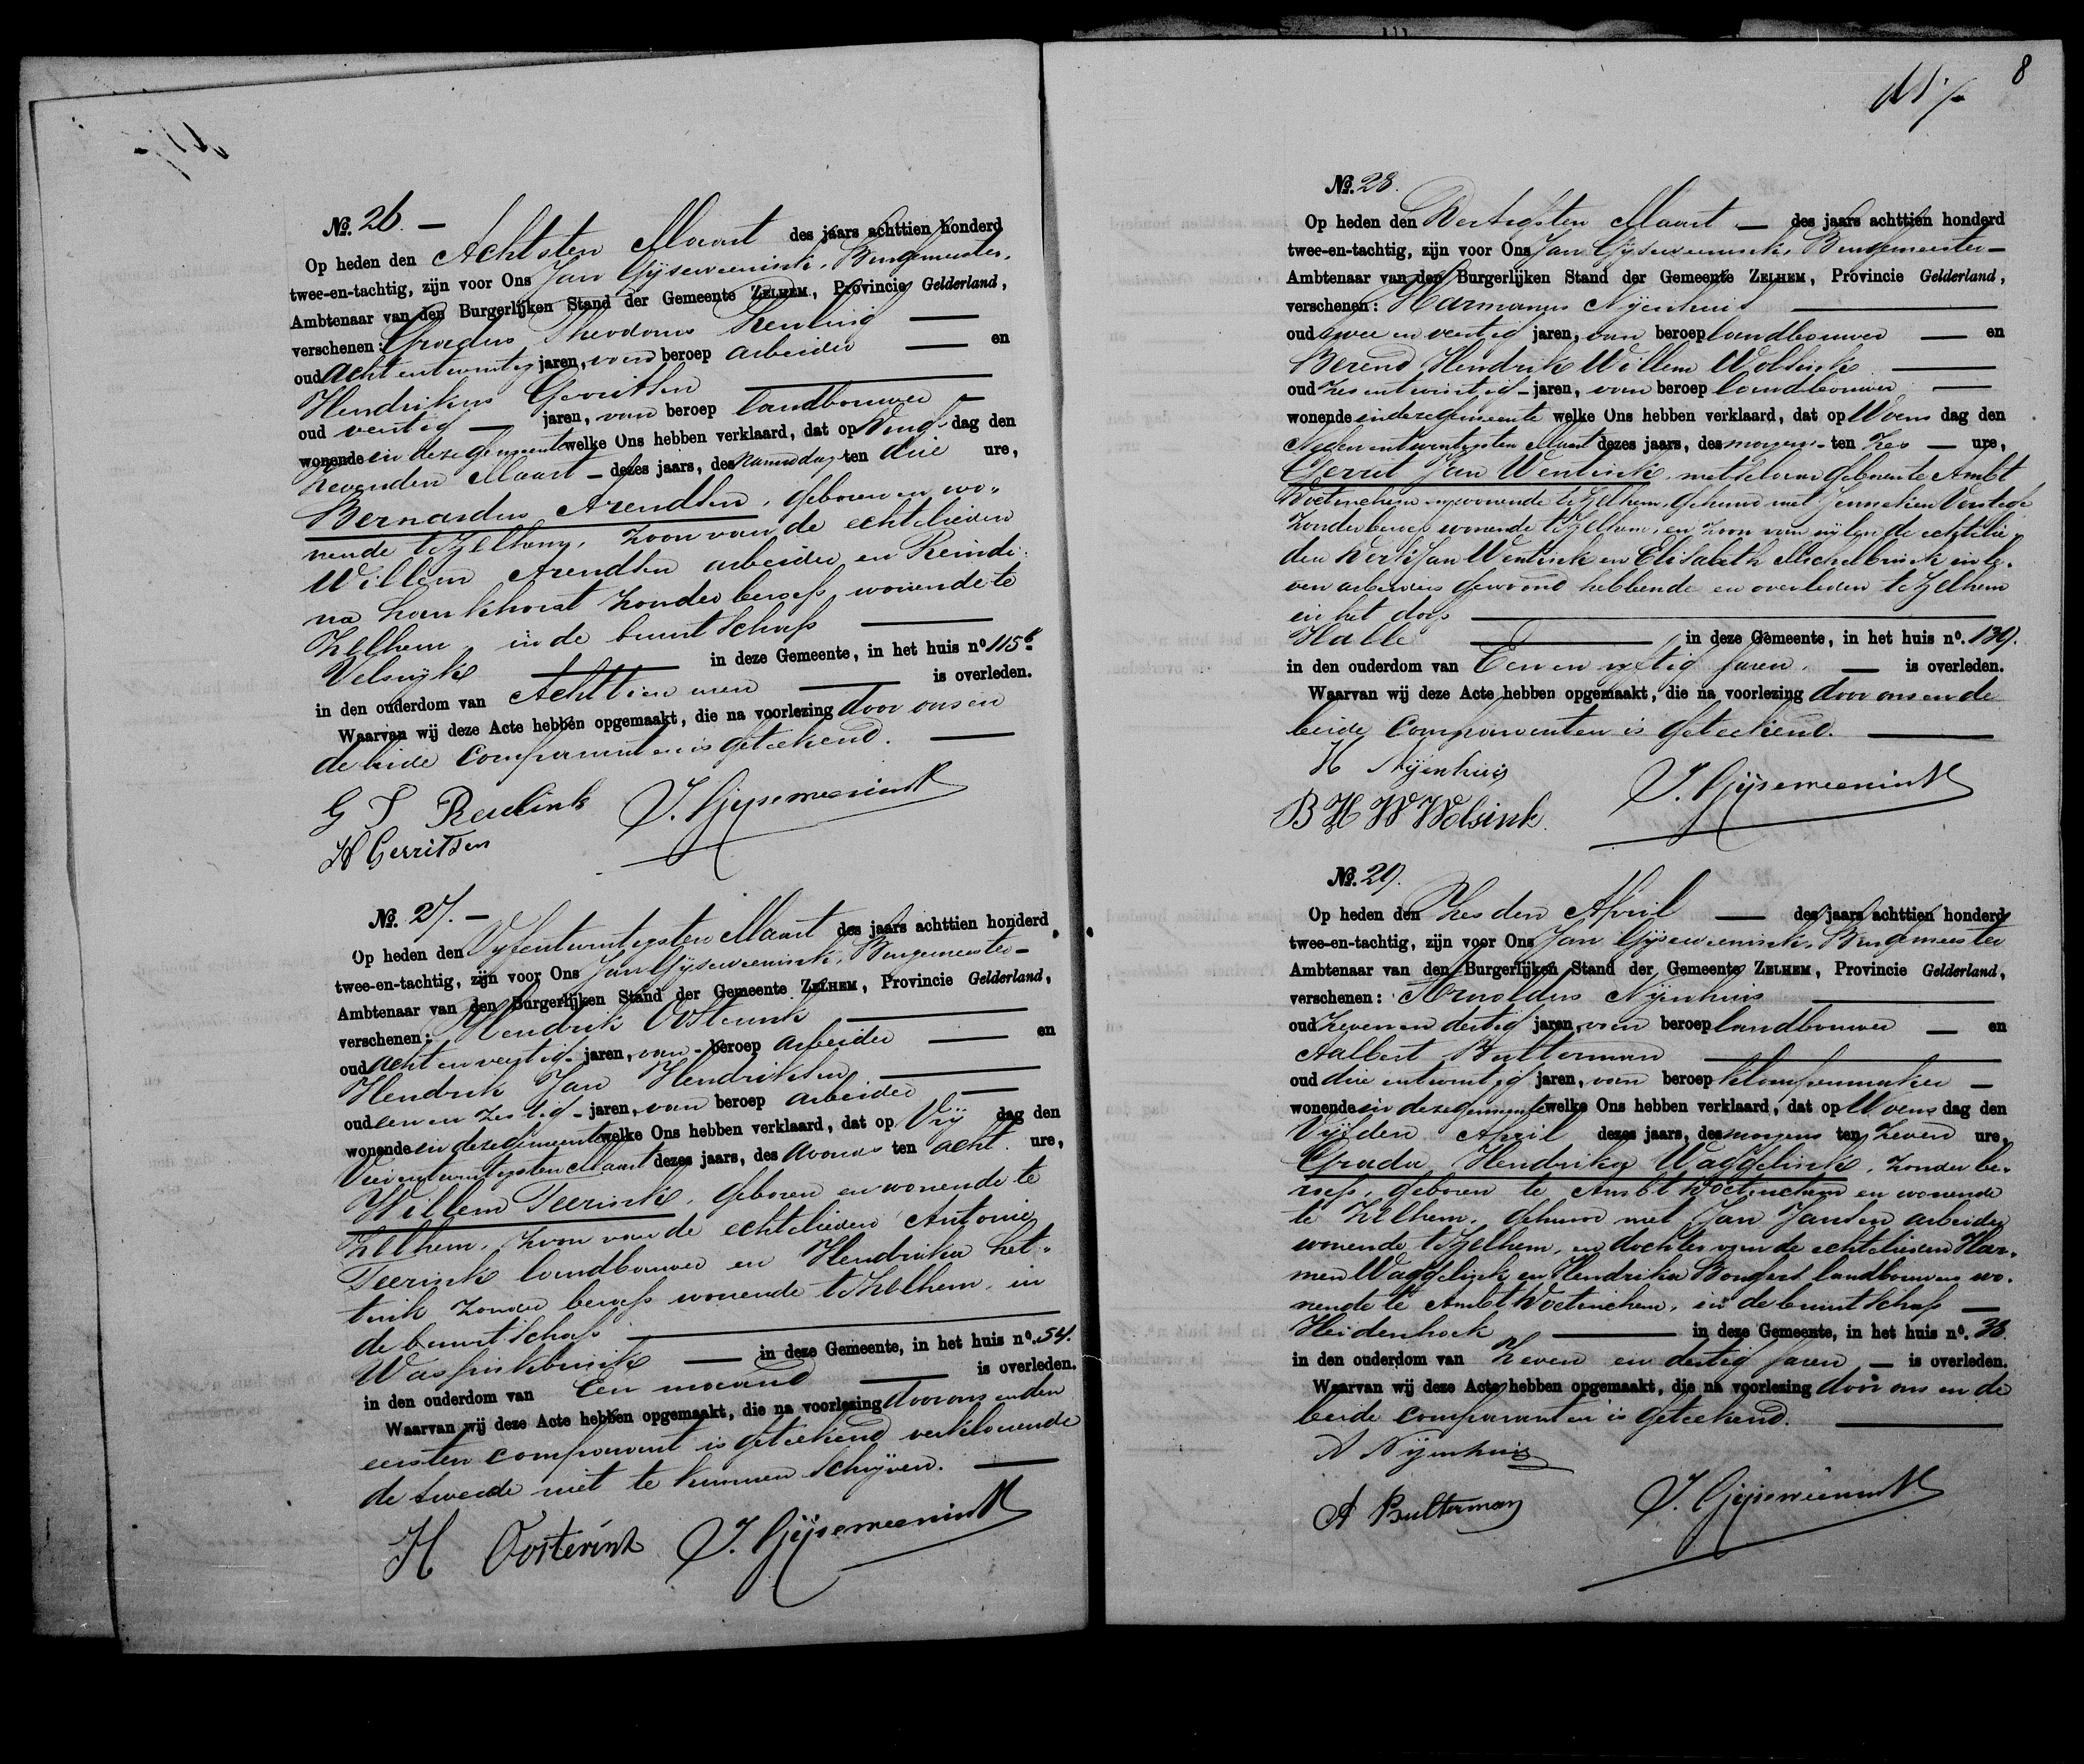 8
No. 26. —
Op heden den Achtsten Maart des jaars achttien honderd
twee-en-tachtig, zijn voor Ons Jan Gijsemeenink, Burgemeester,
Ambtenaar van den Burgerlijken Stand der Gemeente ZELHEM, Provincie Gelderland,
verschenen: Gradus Theodorus Reulink —
oud acht en twintig jaren, van beroep arbeider — en
Hendrikus Gerritsen —
oud veertig — jaren, van beroep landbouwer —
wonende in deze gemeente welke Ons hebben verklaard, dat op Dings dag den
zevenden Maart — dezes jaars, des namiddags ten drie ure,
Bernardus Arendsen, geboren en wo-
nende te Zelhem, zoon van de echtelieden
Willem Arendsen arbeider en Reindi-
na Lankhorst zonder beroep, wonende te
Zelhem, in de buurtschap —
Velswijk — in deze Gemeente, in het huis no. 115
in den ouderdom van Achttien uren — is overleden.
Waarvan wij deze Acte hebben opgemaakt, die na voorlezing door ons en
de beide comparanten is geteekend. —
G T Reulink J. Gijsemeenink
H Gerritsen
No. 27. —
Op heden den Vijfentwintigsten Maart des jaars achttien honderd
twee-en-tachtig, zijn voor Ons Jan Gijsemeenink, Burgemeester —
Ambtenaar van den Burgerlijken Stand der Gemeente ZELHEM, Provincie Gelderland,
verschenen: Hendrik Oosterink —
oud acht en veertig — jaren, van — beroep arbeider — en
Hendrik Jan Hendriksen —
oud een en zestig — jaren, van beroep arbeider —
wonende in deze gemeente welke Ons hebben verklaard, dat op Vrij dag den
Vierentwintigsten Maart dezes jaars, des avonds ten acht ure,
Willem Teerink, geboren en wonende te
Zelhem, zoon van de echtelieden Antonie
Teerink landbouwer en Hendrika Het-
terik zonder beroep wonende te Zelhem, in
de buurtschap —
Wassinkbrink — in deze Gemeente, in het huis no. 54.
in den ouderdom van Een maand — is overleden.
Waarvan wij deze Acte hebben opgemaakt, die na voorlezing door ons en den
eersten comparant is geteekend verklarende
de tweede niet te kunnen schrijven. —
H Oosterink J. Gijsemeenink
No. 28.
Op heden den Dertigsten Maart — des jaars achttien honderd
twee-en-tachtig, zijn voor Ons Jan Gijsemeenink, Burgemeester —
Ambtenaar van den Burgerlijken Stand der Gemeente ZELHEM, Provincie Gelderland,
verschenen: Harmanus Nijenhuis —
oud twee en veertig jaren, van beroep landbouwer — en
Berend Hendrik Willem Wolsink —
oud zes en twintig — jaren, van beroep landbouwer —
wonende in deze gemeente welke Ons hebben verklaard, dat op Woens dag den
Negenentwintigsten Maart dezes jaars, des morgens — ten zes — ure,
Gerrit Jan Wentinck, metselaar geboren te Ambt
Doetinchem en wonende te Zelhem, gehuwd met Jenneken Verstege
zonder beroep wonende te Zelhem, en zoon van wijlen de echtelie-
den Derk Jan Wentinck en Elisabeth Michelbrink in le-
ven arbeiders gewoond hebbende en overleden te Zelhem
in het dorp —
Halle — in deze Gemeente, in het huis no. 139.
in den ouderdom van Een en vijftig jaren, — is overleden.
Waarvan wij deze Acte hebben opgemaakt, die na voorlezing door ons en de
beide comparanten is geteekend. —
H Nijenhuis J. Gijsemeenink
B H W Wolsink.
No. 29.
Op heden den Zesden April — des jaars achttien honderd
twee-en-tachtig, zijn voor Ons Jan Gijsemeenink, Burgemeester
Ambtenaar van den Burgerlijken Stand der Gemeente ZELHEM, Provincie Gelderland,
verschenen: Arnoldus Nijenhuis —
oud zeven en dertig jaren, van beroep landbouwer — en
Aalbert Bulterman —
oud drie entwintig jaren, van beroep klompenmaker —
wonende in deze gemeente welke Ons hebben verklaard, dat op Woens dag den
Vijfden April dezes jaars, des morgens ten zeven ure,
Grada Hendrika Waggelink, zonder be-
roep, geboren te Ambt Doetinchem en wonende
te Zelhem, gehuwd met Jan Jansen arbeider
wonende te Zelhem, en dochter van de echtelieden Har-
men Waggelink en Hendrika Bongers landbouwers wo-
nende te Ambt Doetinchem, in de buurtschap —
Heidenhoek — in deze Gemeente, in het huis no. 38
in den ouderdom van Zeven en dertig jaren, — is overleden.
Waarvan wij deze Acte hebben opgemaakt, die na voorlezing door ons en de
beide comparanten is geteekend. —
A Nijenhuis
A Bulterman J. Gijsemeenink